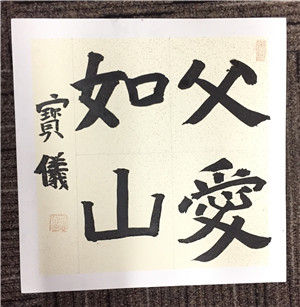 父愛
如山
寶儀